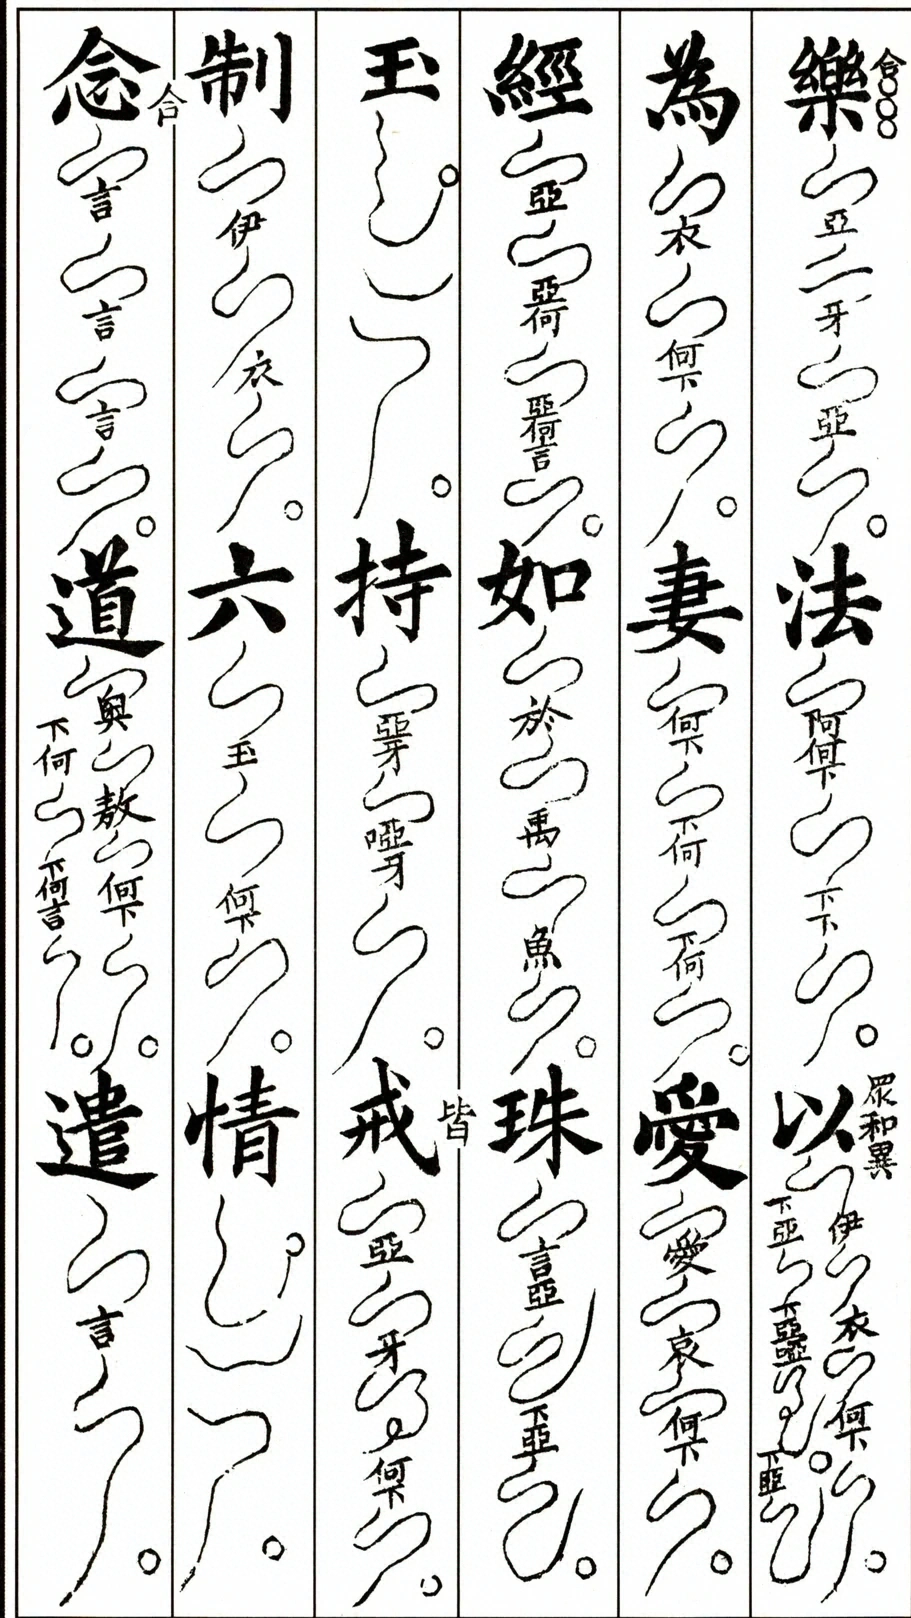 樂 合 亞 牙 亞 法 阿何下 下下 以 眾和異 伊 衣 何下 下亞 下亞啞 下亞
為 衣 何下 妻 何下 下何 下何 愛 愛 哀 何下
經 亞 亞何 亞何言 如 於 禹 魚 珠 言亞 下亞
玉 持 亞牙 啞牙 戒 皆 亞 牙 何下
制 伊 衣 六 玉 何下 情
念 合 言 言 言 道 奧 敖 何下 下何 下何言 遣 言